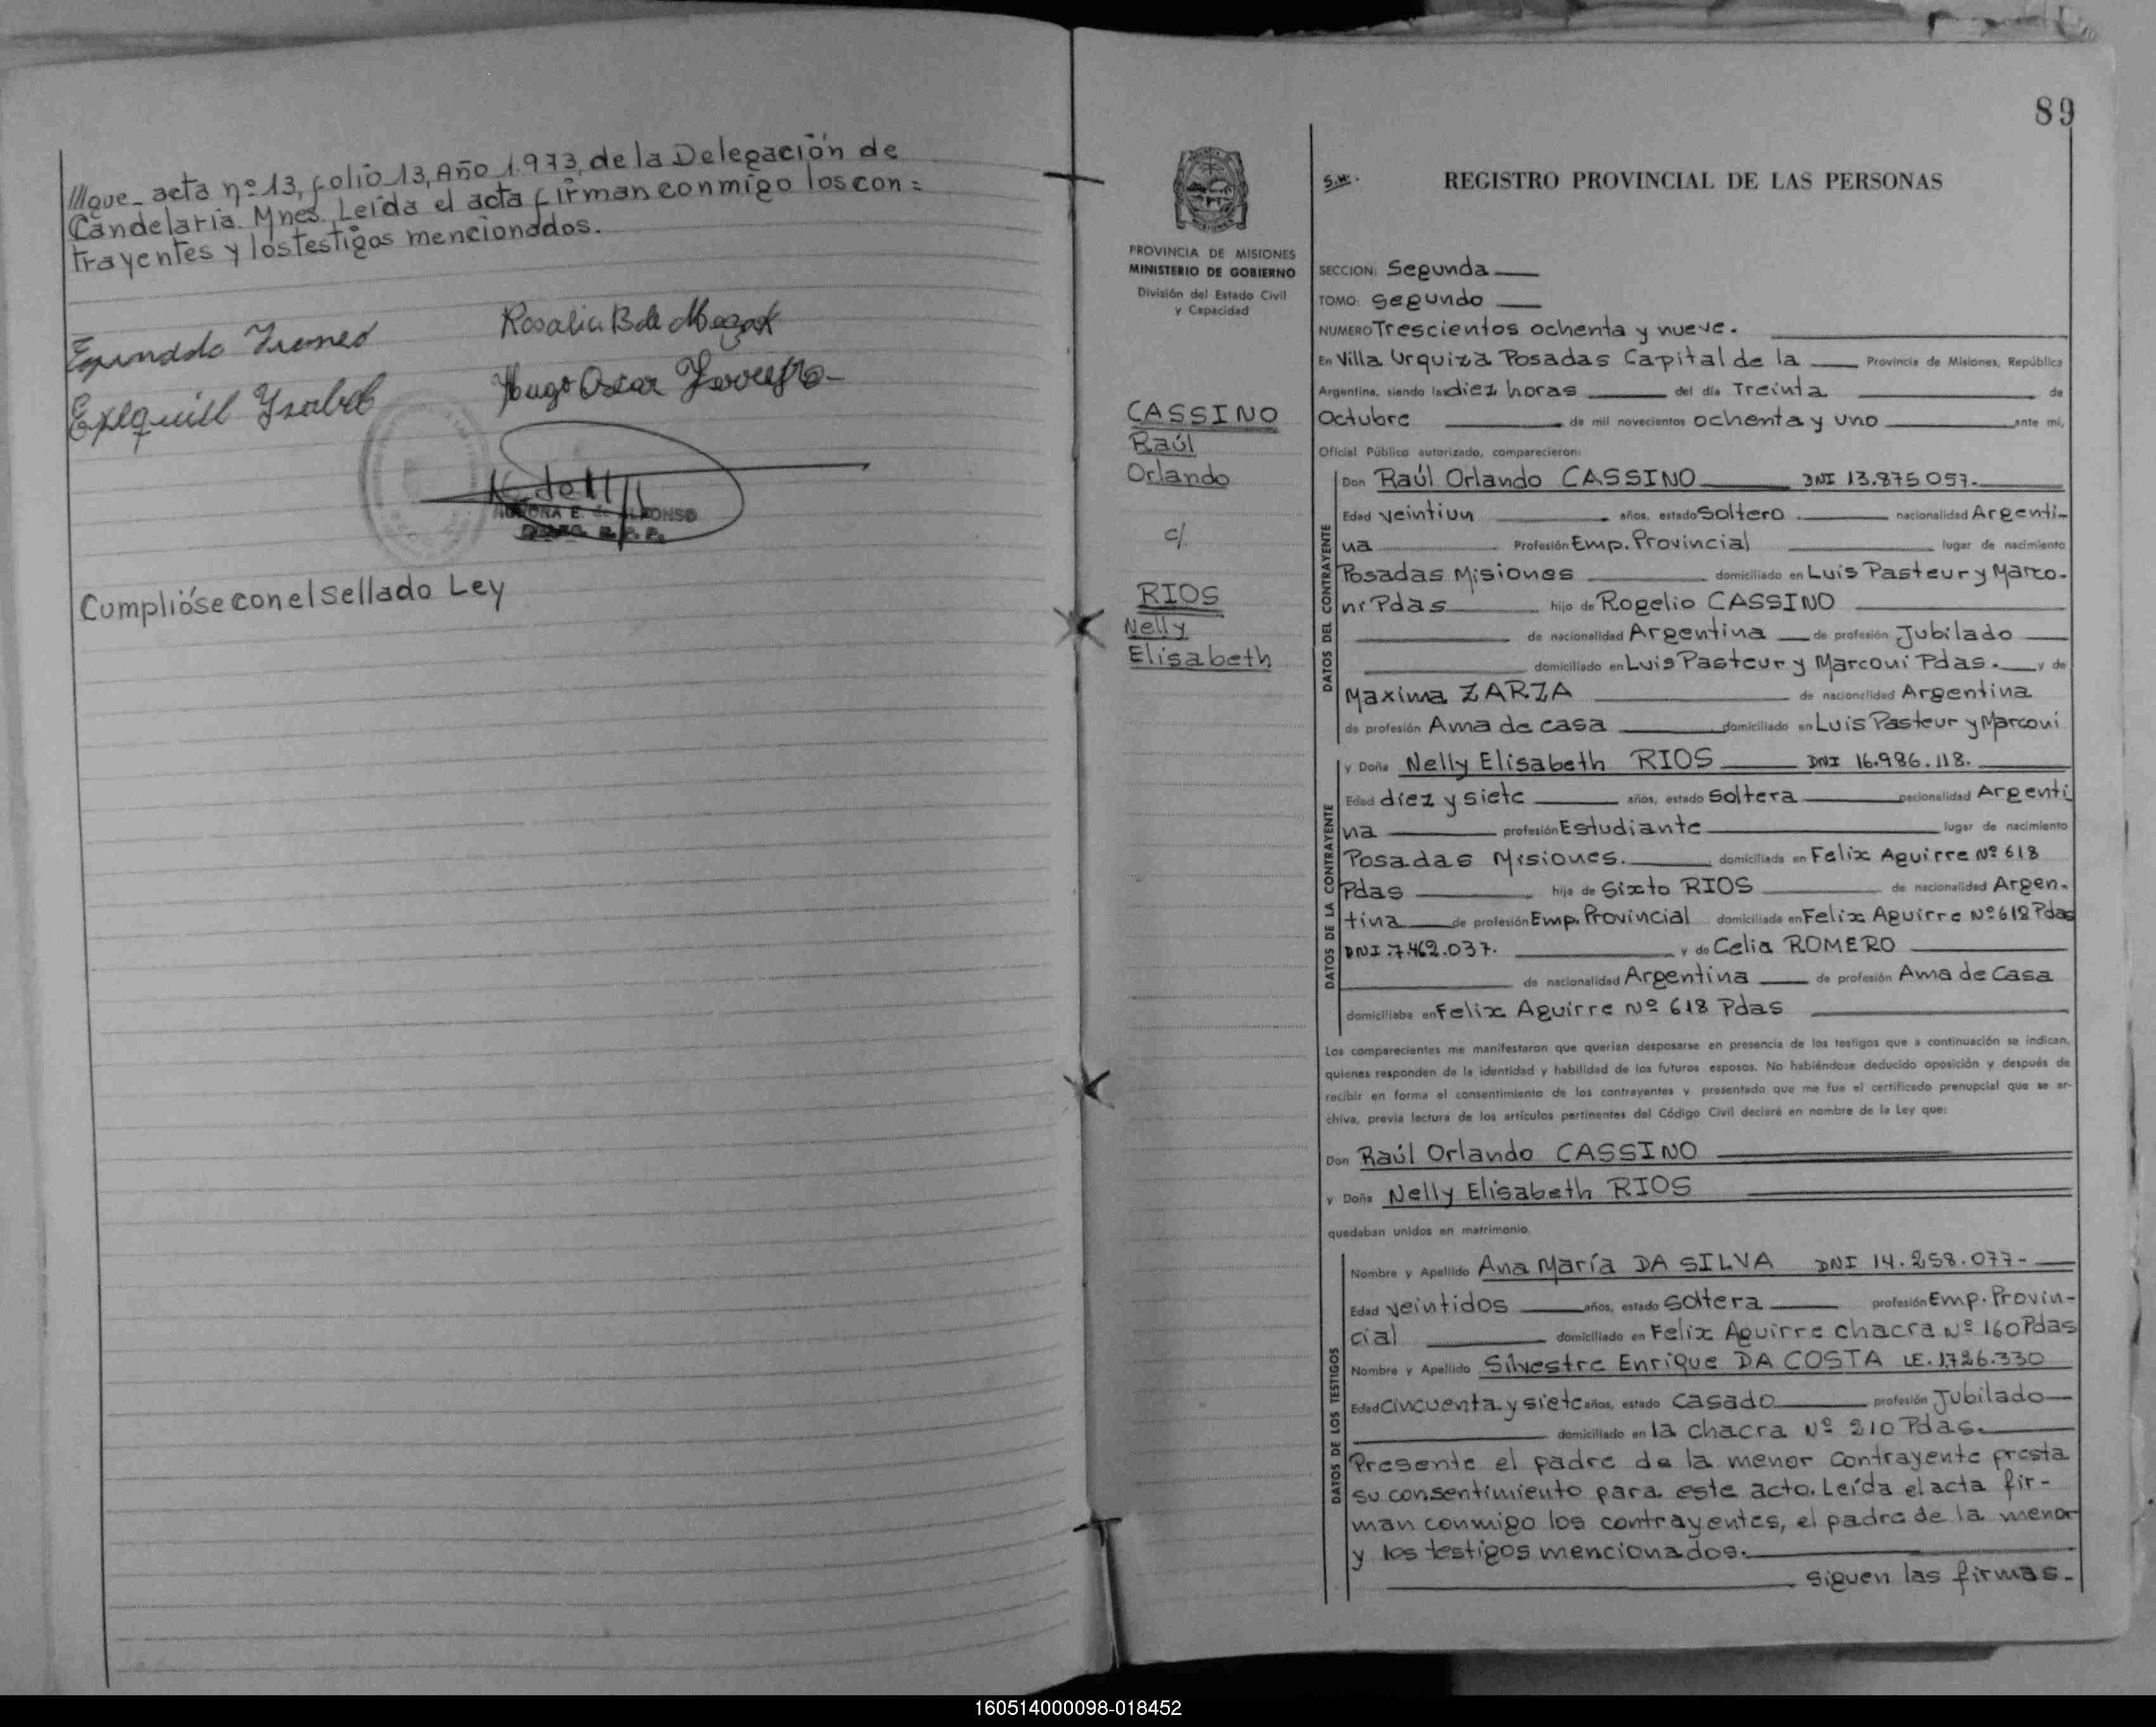 ///que acta nº 13, folio 13, Año 1.973, de la Delegación de
Candelaria. Mnes. Leída el acta firman conmigo los con=
trayentes y los testigos mencionados.
Rosalia B de
Hugo Oscar
Exequiel Ysabel
AURORA E. de ALFONSO
DELEG. R. P. P.
Cumplióse con el sellado Ley
89
REGISTRO PROVINCIAL DE LAS PERSONAS
PROVINCIA DE MISIONES
MINISTERIO DE GOBIERNO
División del Estado Civil
y Capacidad
CASSINO
Raúl
Orlando
c/
RIOS
Nelly
Elisabeth
SECCION: Segunda
TOMO: Segundo
NUMERO Trescientos ochenta y nueve.
En Villa Urquiza Posadas Capital de la Provincia de Misiones, República
Argentina, siendo las diez horas del día Treinta de
Octubre de mil novecientos ochenta y uno ante mi,
Oficial Público autorizado, comparecieron:
DATOS DEL CONTRAYENTE
Don Raúl Orlando CASSINO DNI 13.875.057.
Edad veintiun años, estado Soltero nacionalidad Argenti-
na Profesión Emp. Provincial lugar de nacimiento
Posadas Misiones domiciliado en Luis Pasteur y Marco-
ni Pdas hijo de Rogelio CASSINO
de nacionalidad Argentina de profesión Jubilado
domiciliado en Luis Pasteur y Marconi Pdas. y de
Maxima ZARZA de nacionalidad Argentina
de profesión Ama de casa domiciliado en Luis Pasteur y Marconi
DATOS DE LA CONTRAYENTE
y Doña Nelly Elisabeth RIOS DNI 16.986.118.
Edad diez y siete años, estado Soltera nacionalidad Argenti
na profesión Estudiante lugar de nacimiento
Posadas Misiones. domiciliada en Felix Aguirre Nº 618
Pdas hija de Sixto RIOS de nacionalidad Argen-
tina de profesión Emp. Provincial domiciliada en Felix Aguirre Nº 618 Pdas
DNI :7.462.037. y de Celia ROMERO
de nacionalidad Argentina de profesión Ama de Casa
domiciliaba en Felix Aguirre Nº 618 Pdas
Los comparecientes me manifestaron que querían desposarse en presencia de los testigos que a continuación se indican,
quienes responden de la identidad y habilidad de los futuros esposos. No habiéndose deducido oposición y después de
recibir en forma el consentimiento de los contrayentes y presentado que me fue el certificado prenupcial que se ar-
chiva, previa lectura de los artículos pertinentes del Código Civil declaré en nombre de la Ley que:
Don Raúl Orlando CASSINO
y Doña Nelly Elisabeth RIOS
quedaban unidos en matrimonio.
DATOS DE LOS TESTIGOS
Nombre y Apellido Ana María DA SILVA DNI 14.258.077-
Edad veintidos años, estado Soltera profesión Emp. Provin-
cial domiciliado en Felix Aguirre chacra Nº 160 Pdas
Nombre y Apellido Silvestre Enrique DA COSTA LE. 1.726.330
Edad cincuenta y siete años, estado casado profesión Jubilado
domiciliado en la chacra Nº 210 Pdas.
Presente el padre de la menor contrayente presta
su consentimiento para este acto. Leída el acta fir-
man conmigo los contrayentes, el padre de la menor
y los testigos mencionados.
Siguen las firmas.
160514000098-018452